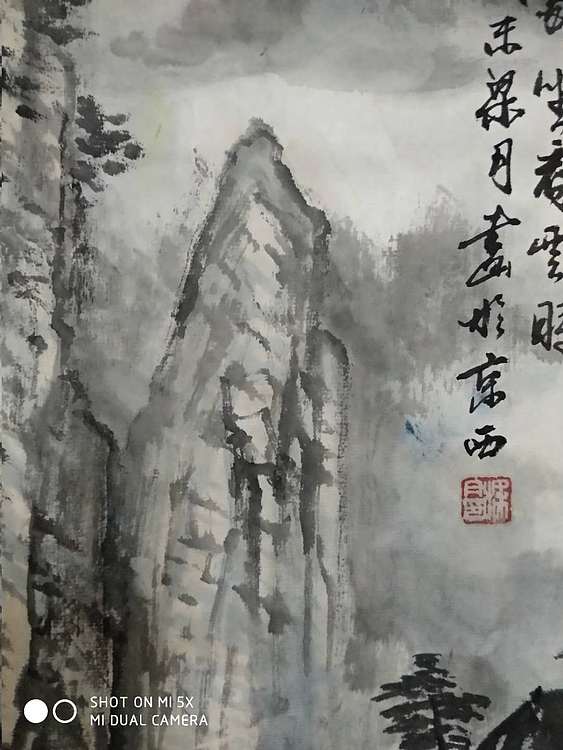 坐看雲時
未梁月畫於京西
SHOT ON MI 5X
MI DUAL CAMERA